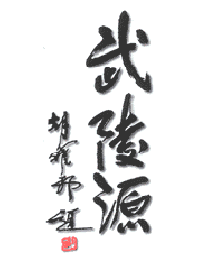 武陵源
胡耀邦题